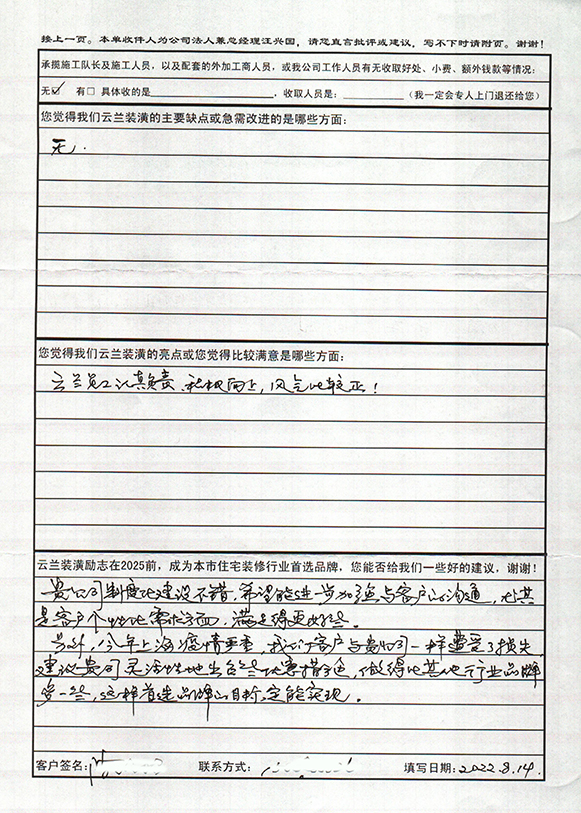 接上一页。本单收件人为公司法人兼总经理汪兴国，请您直言批评或建议，写不下时请附页。谢谢！
承揽施工队长及施工人员，以及配套的外加工商人员，或我公司工作人员有无收取好处、小费、额外钱款等情况：
无☑ 有□ 具体收的是＿＿＿＿＿＿＿＿，收取人员是：＿＿＿＿＿（我一定会专人上门退还给您）
您觉得我们云兰装潢的主要缺点或急需改进的是哪些方面：
无.
您觉得我们云兰装潢的亮点或您觉得比较满意是哪些方面：
云兰员工认真负责、积极向上，风气比较正！
云兰装潢励志在2025前，成为本市住宅装修行业首选品牌，您能否给我们一些好的建议，谢谢！
贵公司制度化建设不错，希望能进一步加强与客户的沟通，尤其
是客户个性化需求方面，满足得更好些。
另外，今年上海疫情严重，我们客户与贵公司一样遭受了损失，
建议贵司灵活性地出台些优惠措施，做得比其他行业品牌
多一些，这样首选品牌的目标定能实现。
客户签名： 联系方式： 填写日期：2022.8.14.